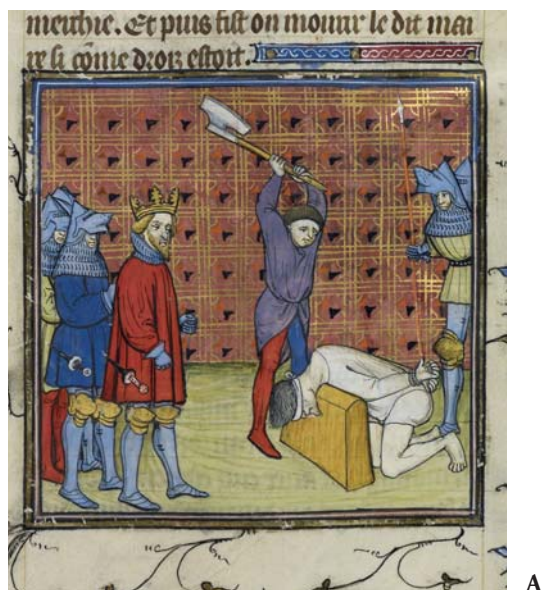 meschie. Et puis fist on mourir le dit mai
re si cõme droiz estoit.
A